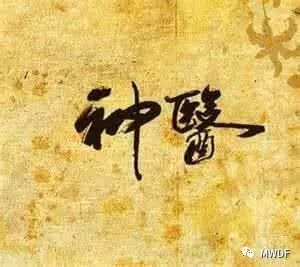 神醫
MWDF